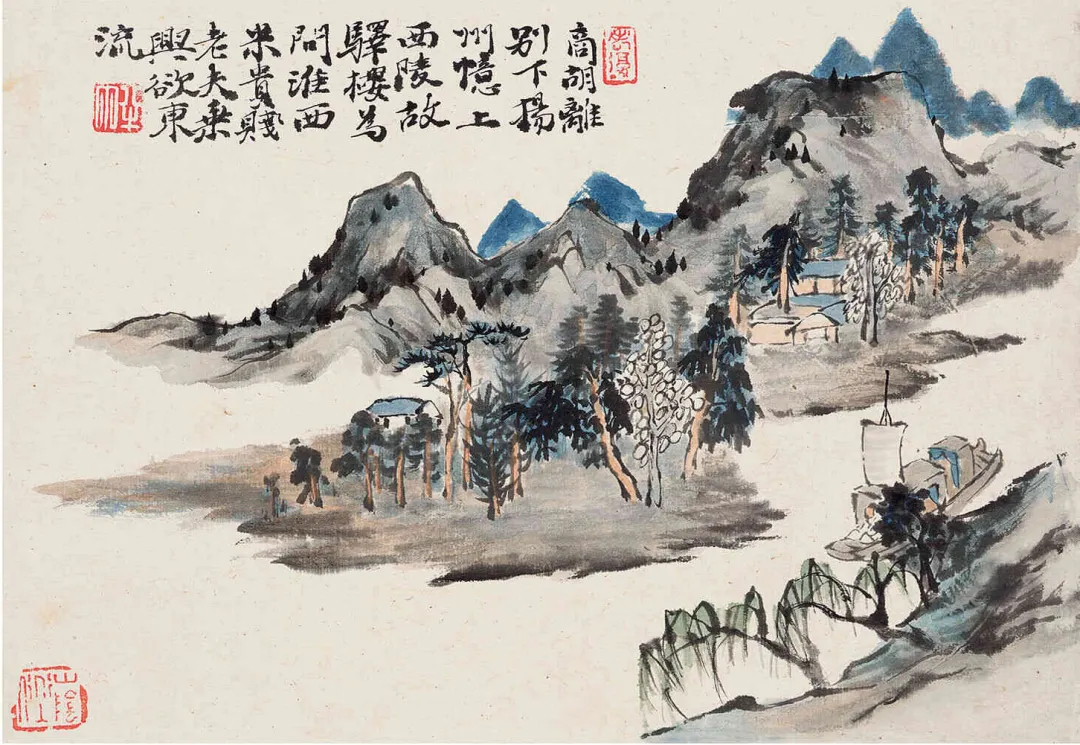 商胡離
別下揚
州憶上
西陵故
驛樓為
問淮西
米貴賤
老夫乗
興欲東
流